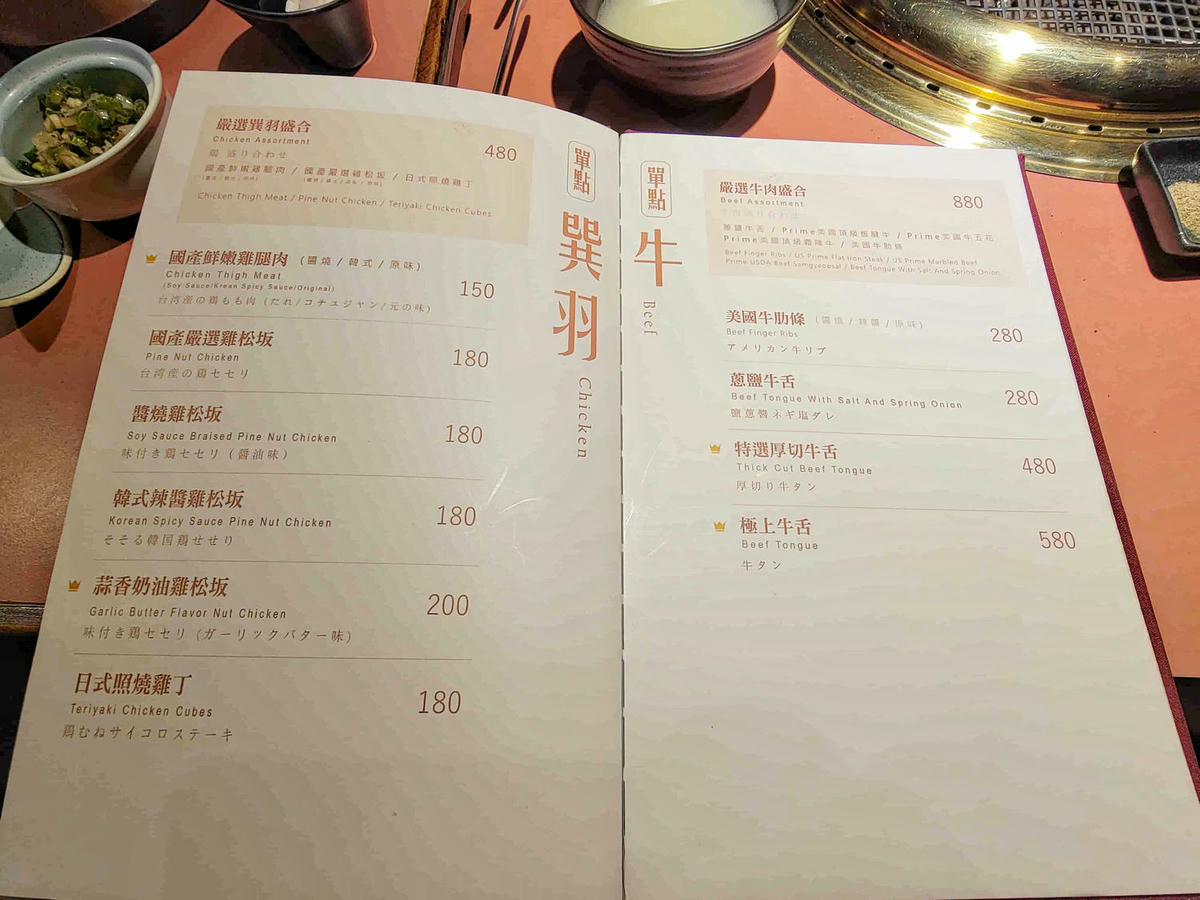 嚴選巽羽盛合
Chicken Assortment
鶏 盛り合わせ
480
國產鮮嫩雞腿肉 / 國產嚴選雞松坂 / 日式照燒雞丁
Chicken Thigh Meat / Pine Nut Chicken / Teriyaki Chicken Cubes
單點
巽羽
Chicken
國產鮮嫩雞腿肉 (醬燒 / 韓式 / 原味)
Chicken Thigh Meat
(Soy Sauce/Krean Spicy Sauce/Original)
台湾産の鶏もも肉 (たれ/コチュジャン/元の味)
150
國產嚴選雞松坂
Pine Nut Chicken
台湾産の鶏セセリ
180
醬燒雞松坂
Soy Sauce Braised Pine Nut Chicken
味付き鶏セセリ (醤油味)
180
韓式辣醬雞松坂
Korean Spicy Sauce Pine Nut Chicken
そそる韓国鶏せせり
180
蒜香奶油雞松坂
Garlic Butter Flavor Nut Chicken
味付き鶏セセリ (ガーリックバター味)
200
日式照燒雞丁
Teriyaki Chicken Cubes
鶏むねサイコロステーキ
180
單點
牛
Beef
嚴選牛肉盛合
Beef Assortment
牛肉盛り合わせ
880
蔥鹽牛舌 / Prime美國頂級板腱牛 / Prime美國牛五花
Prime美國頂級霜降牛 / 美國牛肋條
Beef Finger Ribs / US Prime Flat Iron Steak / US Prime Marbled Beef
Prime USDA Beef Samgyeobsal / Beef Tongue With Salt And Spring Onion
美國牛肋條 (醬燒 / 辣醬 / 原味)
Beef Finger Ribs
アメリカン牛リブ
280
蔥鹽牛舌
Beef Tongue With Salt And Spring Onion
鹽蔥醬ネギ塩ダレ
280
特選厚切牛舌
Thick Cut Beef Tongue
厚切り牛タン
480
極上牛舌
Beef Tongue
牛タン
580